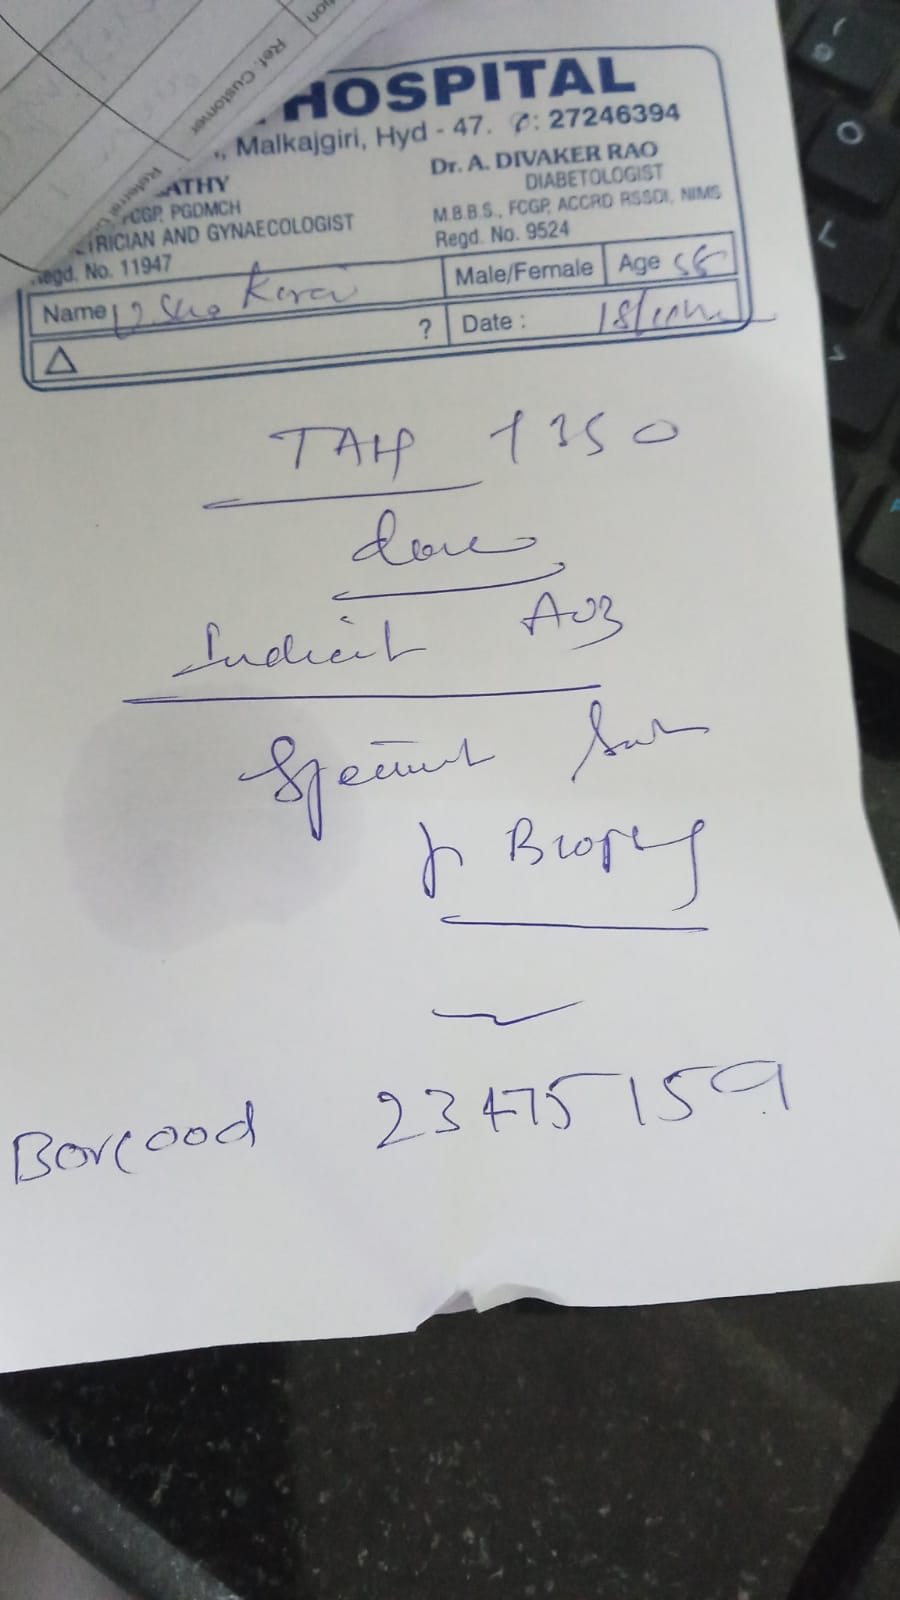 tion
Ref. Customer
Referral
HOSPITAL
Malkajgiri, Hyd - 47. ✆: 27246394
ATHY
FCGP, PGDMCH
TRICIAN AND GYNAECOLOGIST
Regd. No. 11947
Dr. A. DIVAKER RAO
DIABETOLOGIST
M.B.B.S., FCGP, ACCRD RSSDI, NIMS
Regd. No. 9524
Name
Male/Female Age 55
? Date : 18/
TAH 1350
done
Indicat
Specimen
Biopsy
Borcood 23475159